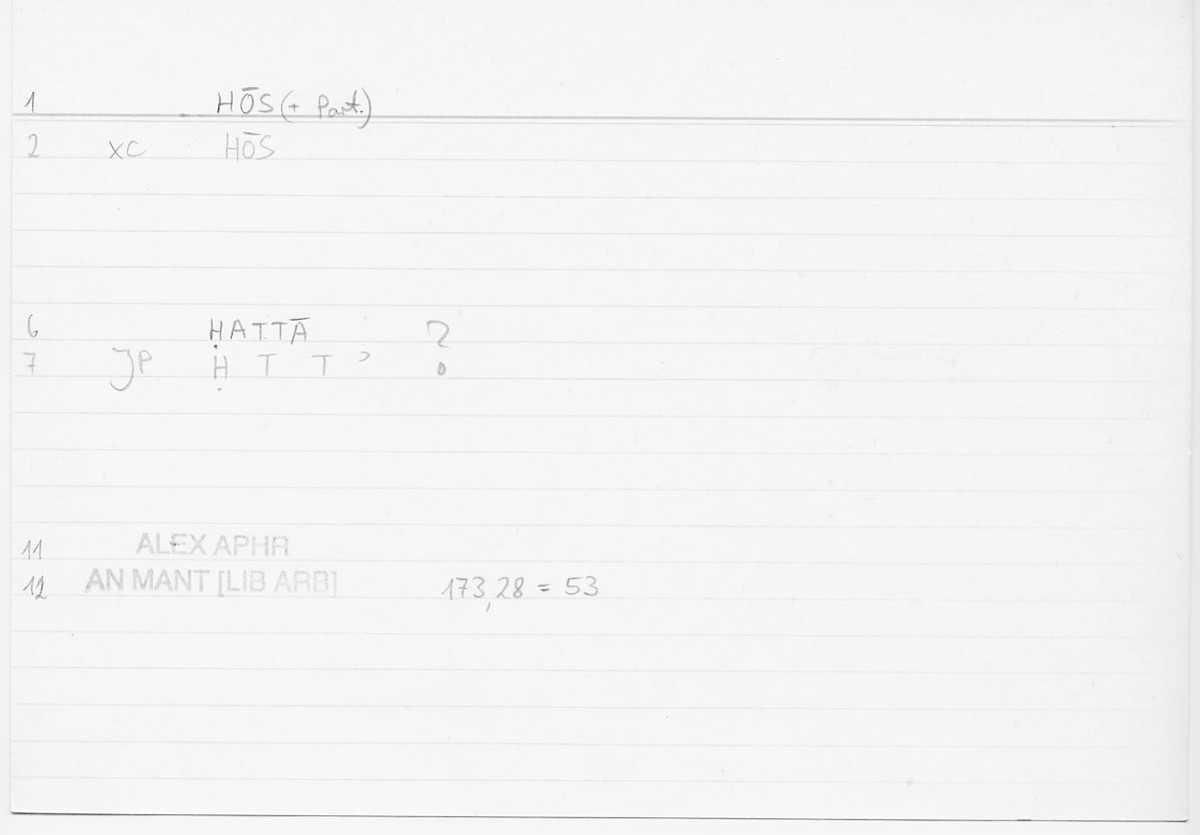 1 HŌS (+ Part.)
2 XC HŌS
6 ḤATTĀ ?
7 JP Ḥ T T ʾ
11 ALEX APHR
12 AN MANT [LIB ARB] 173,28 = 53